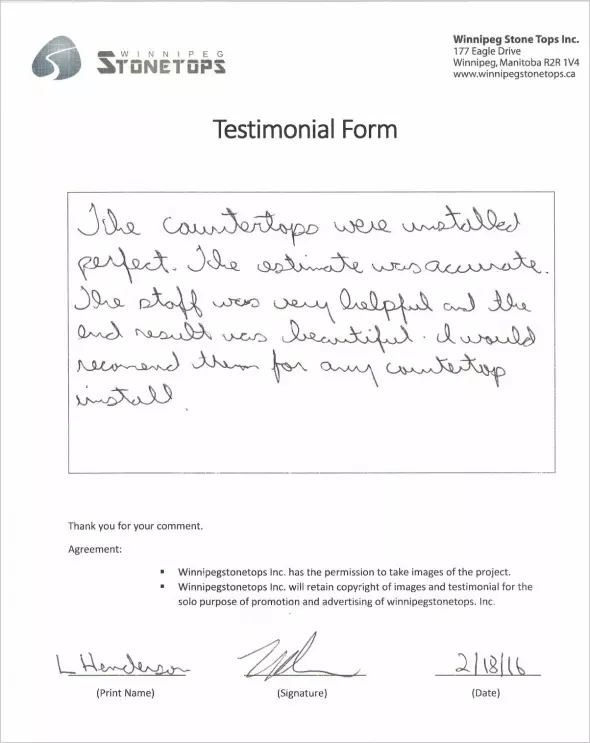 WINNIPEG
STONETOPS
Winnipeg Stone Tops Inc.
177 Eagle Drive
Winnipeg, Manitoba R2R 1V4
www.winnipegstonetops.ca
Testimonial Form
The countertops were installed
perfect. The estimate was accurate.
The staff was very helpful and the
end result was beautiful. I would
recomend them for any countertop
install.
Thank you for your comment.
Agreement:
▪ Winnipegstonetops Inc. has the permission to take images of the project.
▪ Winnipegstonetops Inc. will retain copyright of images and testimonial for the
solo purpose of promotion and advertising of winnipegstonetops. Inc.
L Henderson 2/18/16
(Print Name) (Signature) (Date)